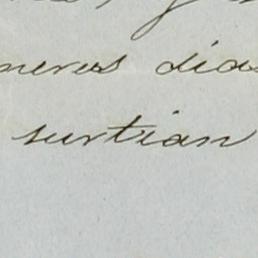 meros dias
surtian